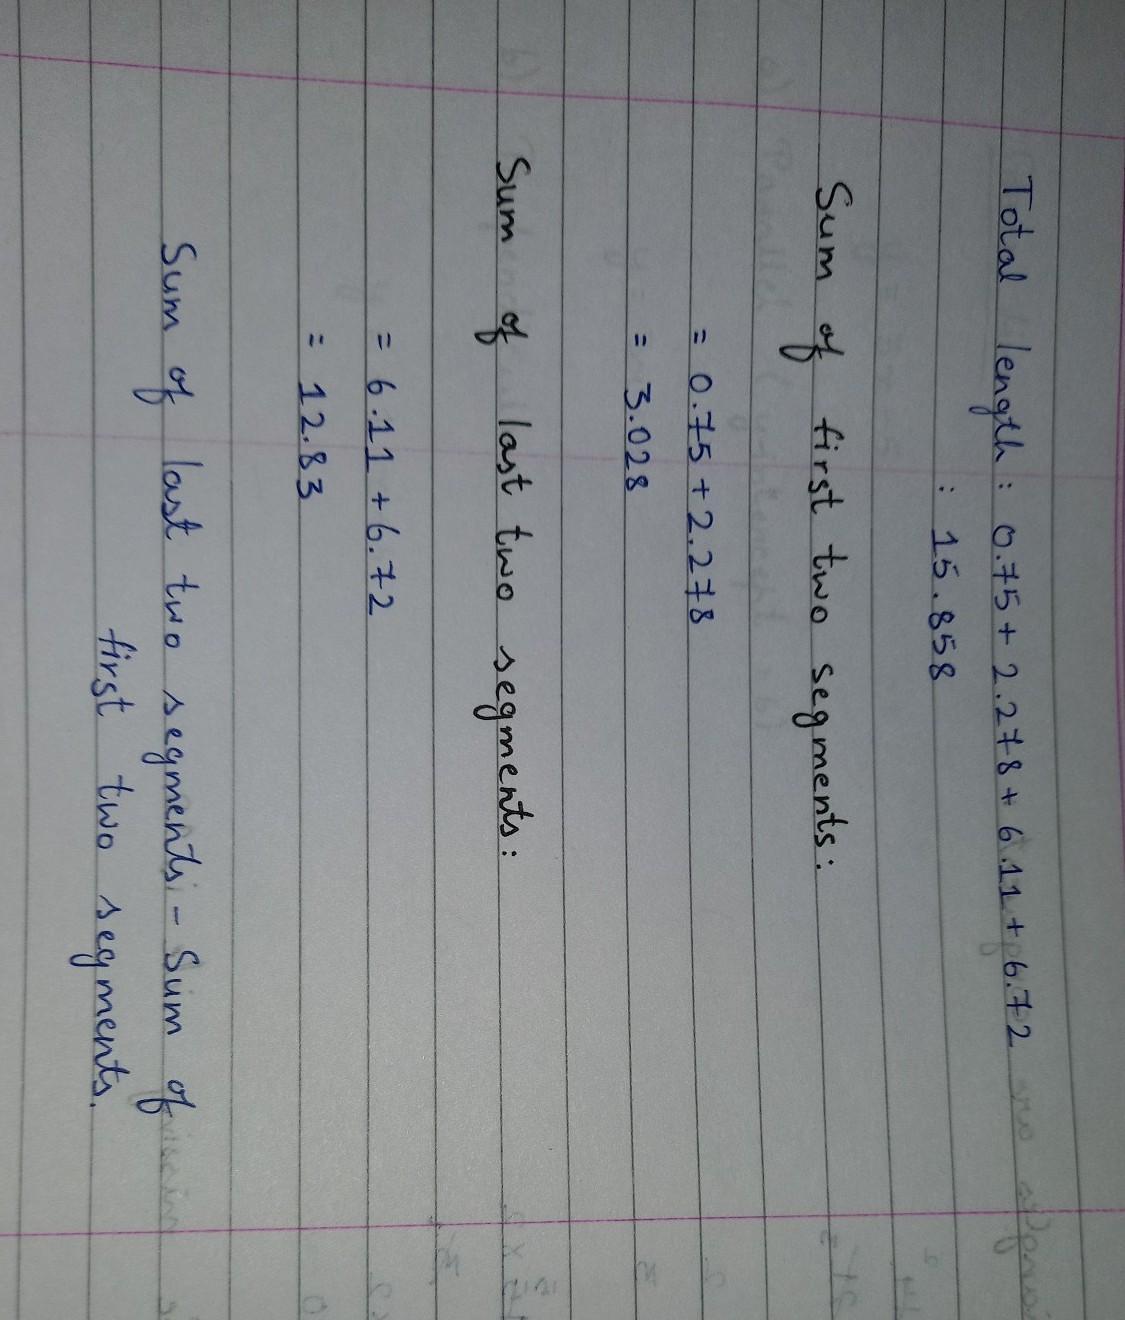 Total length : 0.75 + 2.278 + 6.11 + 6.72
: 15.858
Sum of first two segments:
= 0.75 + 2.278
= 3.028
Sum of last two segments:
= 6.11 + 6.72
= 12.83
Sum of last two segments - Sum of
first two segments.